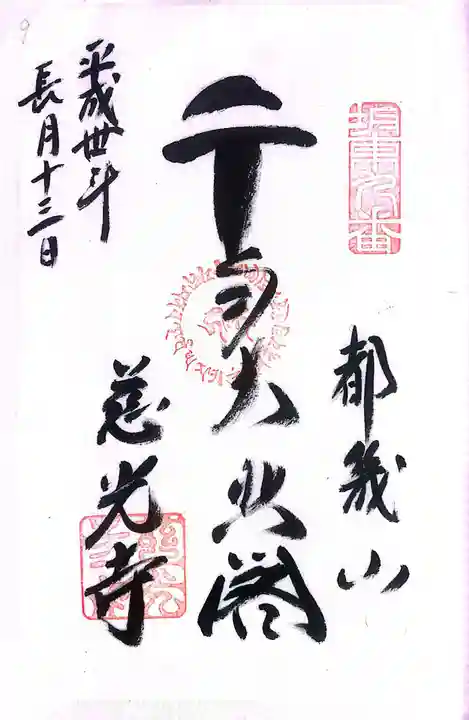 坂東九番
都幾山
千手大悲閣
慈光寺
平成丗年
長月十三日
9